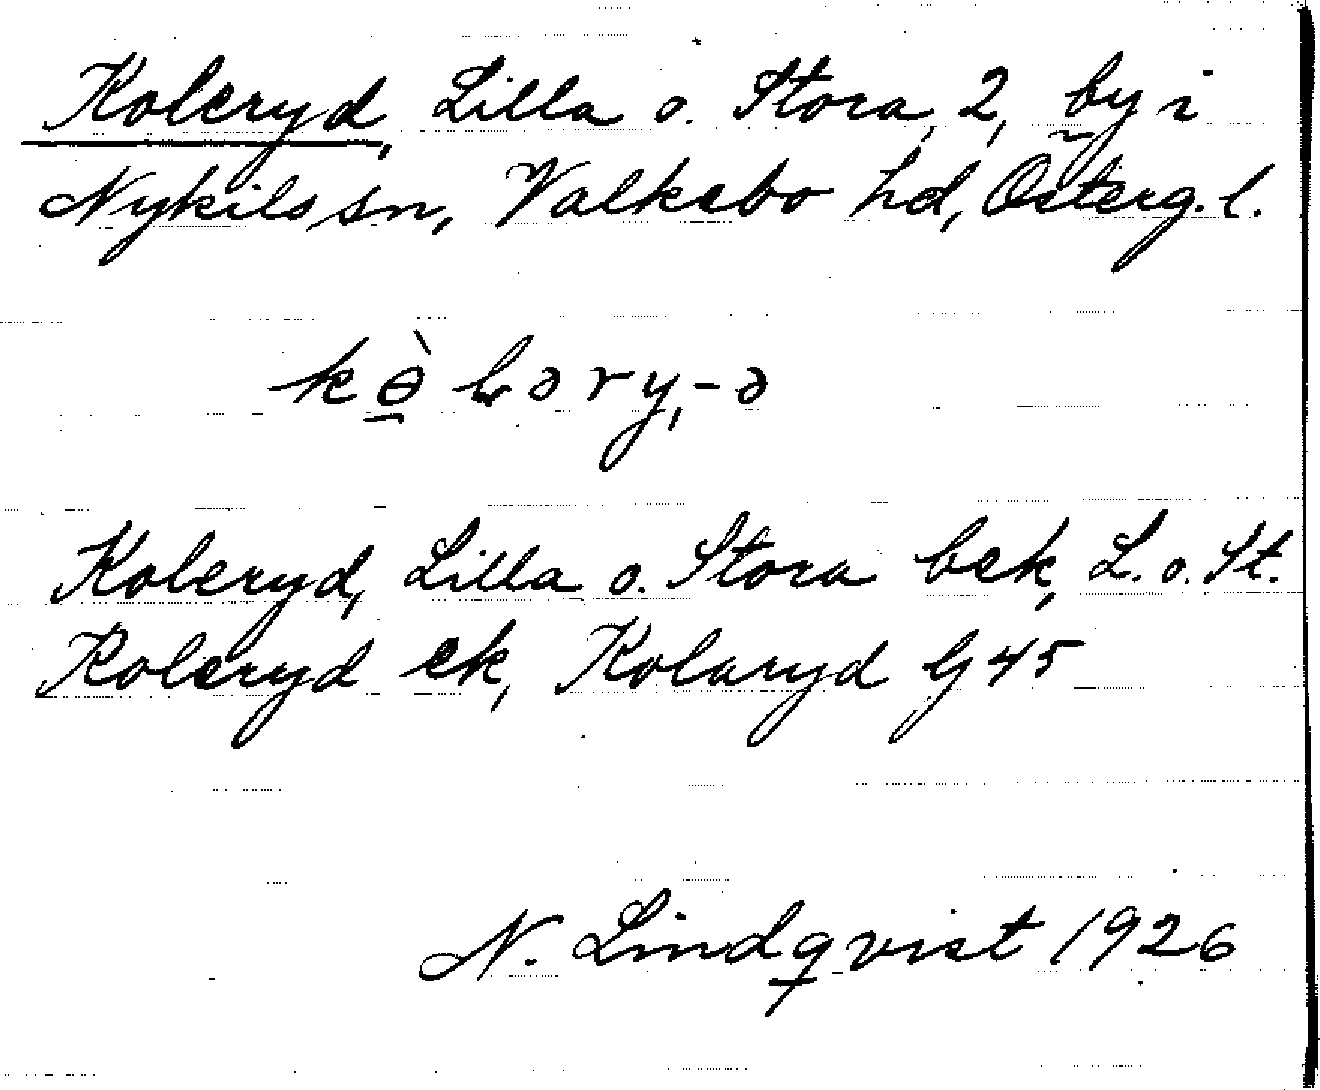 Koleryd, Lilla o. Stora, 2, by i
Nykils sn, Valkebo hd, Österg. l.
kɵ̱̀ɽəry,-ə
Koleryd, Lilla o. Stora bek, L. o. St.
Koleryd ek, Kolaryd G 45
N. Lindqvist 1926